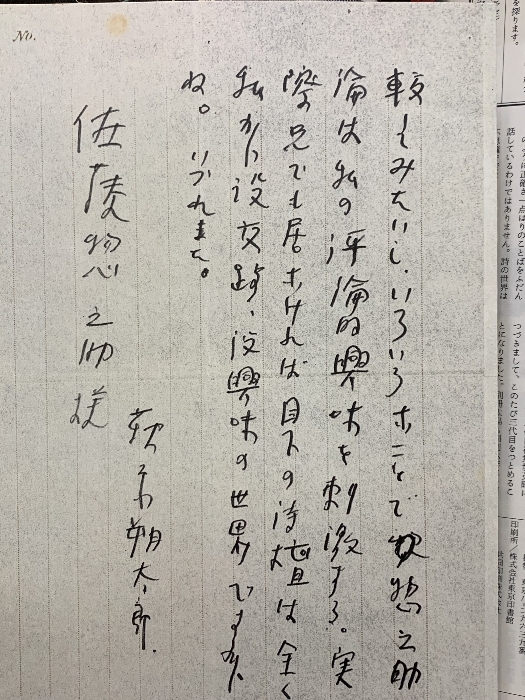 較してみたいし、いろいろなことで惣之助
論は私の評論的興味を刺激する。実
際兄でも居なければ目下の詩壇は全く
私から没交渉、没興味の世界ですから
ね。いづれまた。
萩原朔太郎.
佐藤惣之助様
No.
を探ります。
正確さ一点ばりのことばをふだん
話しているわけではありません。詩の世界は
つづきまして、このたび二代目をつとめるこ
とになりました
印刷所／株式会社東京印書館